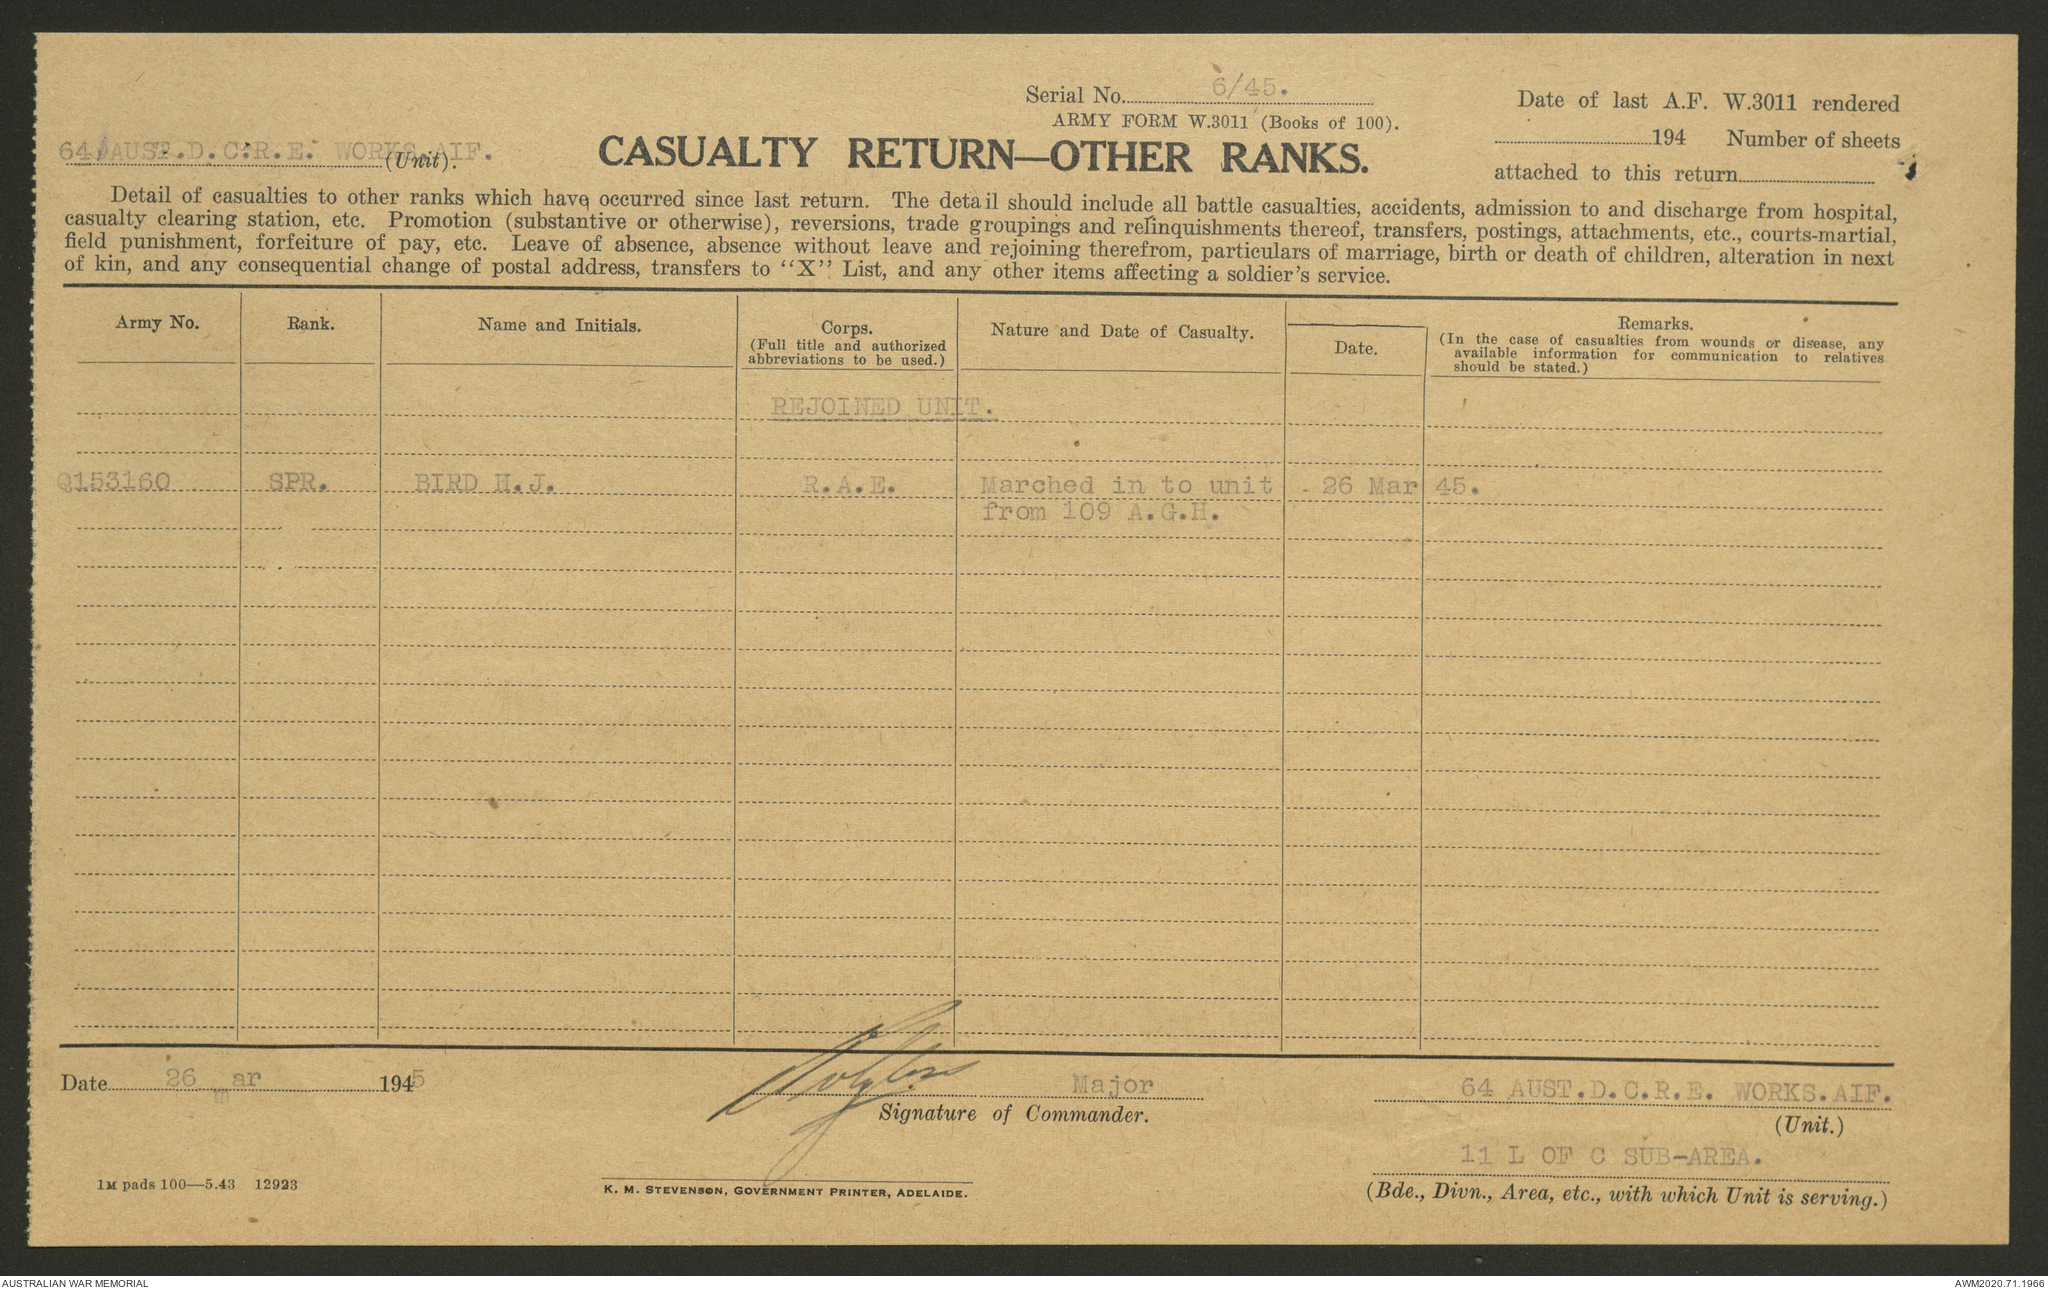 Serial No. 6/45.
ARMY FORM W.3011 (Books of 100).
Date of last A.F. W.3011 rendered
194 Number of sheets
attached to this return
64 AUST.D.C.R.E. WORKS.AIF.
(Unit).
CASUALTY RETURN—OTHER RANKS.
Detail of casualties to other ranks which have occurred since last return. The detail should include all battle casualties, accidents, admission to and discharge from hospital,
casualty clearing station, etc. Promotion (substantive or otherwise), reversions, trade groupings and relinquishments thereof, transfers, postings, attachments, etc., courts-martial,
field punishment, forfeiture of pay, etc. Leave of absence, absence without leave and rejoining therefrom, particulars of marriage, birth or death of children, alteration in next
of kin, and any consequential change of postal address, transfers to "X" List, and any other items affecting a soldier's service.
Army No. Rank. Name and Initials. Corps. Nature and Date of Casualty. Date. Remarks.
(Full title and authorized
abbreviations to be used.)
(In the case of casualties from wounds or disease, any
available information for communication to relatives
should be stated.)
REJOINED UNIT.
Q153160 SPR. BIRD H.J. R.A.E. Marched in to unit 26 Mar 45.
from 109 A.G.H.
Date 26 mar 1945
Major
Signature of Commander.
64 AUST.D.C.R.E. WORKS.AIF.
(Unit.)
11 L OF C SUB-AREA.
(Bde., Divn., Area, etc., with which Unit is serving.)
1M pads 100—5.43 12923
K. M. STEVENSON, GOVERNMENT PRINTER, ADELAIDE.
AUSTRALIAN WAR MEMORIAL
AWM2020.71.1966